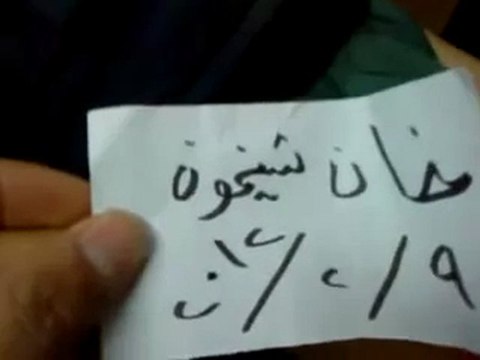 خان شيخون
٩/٢/١٢